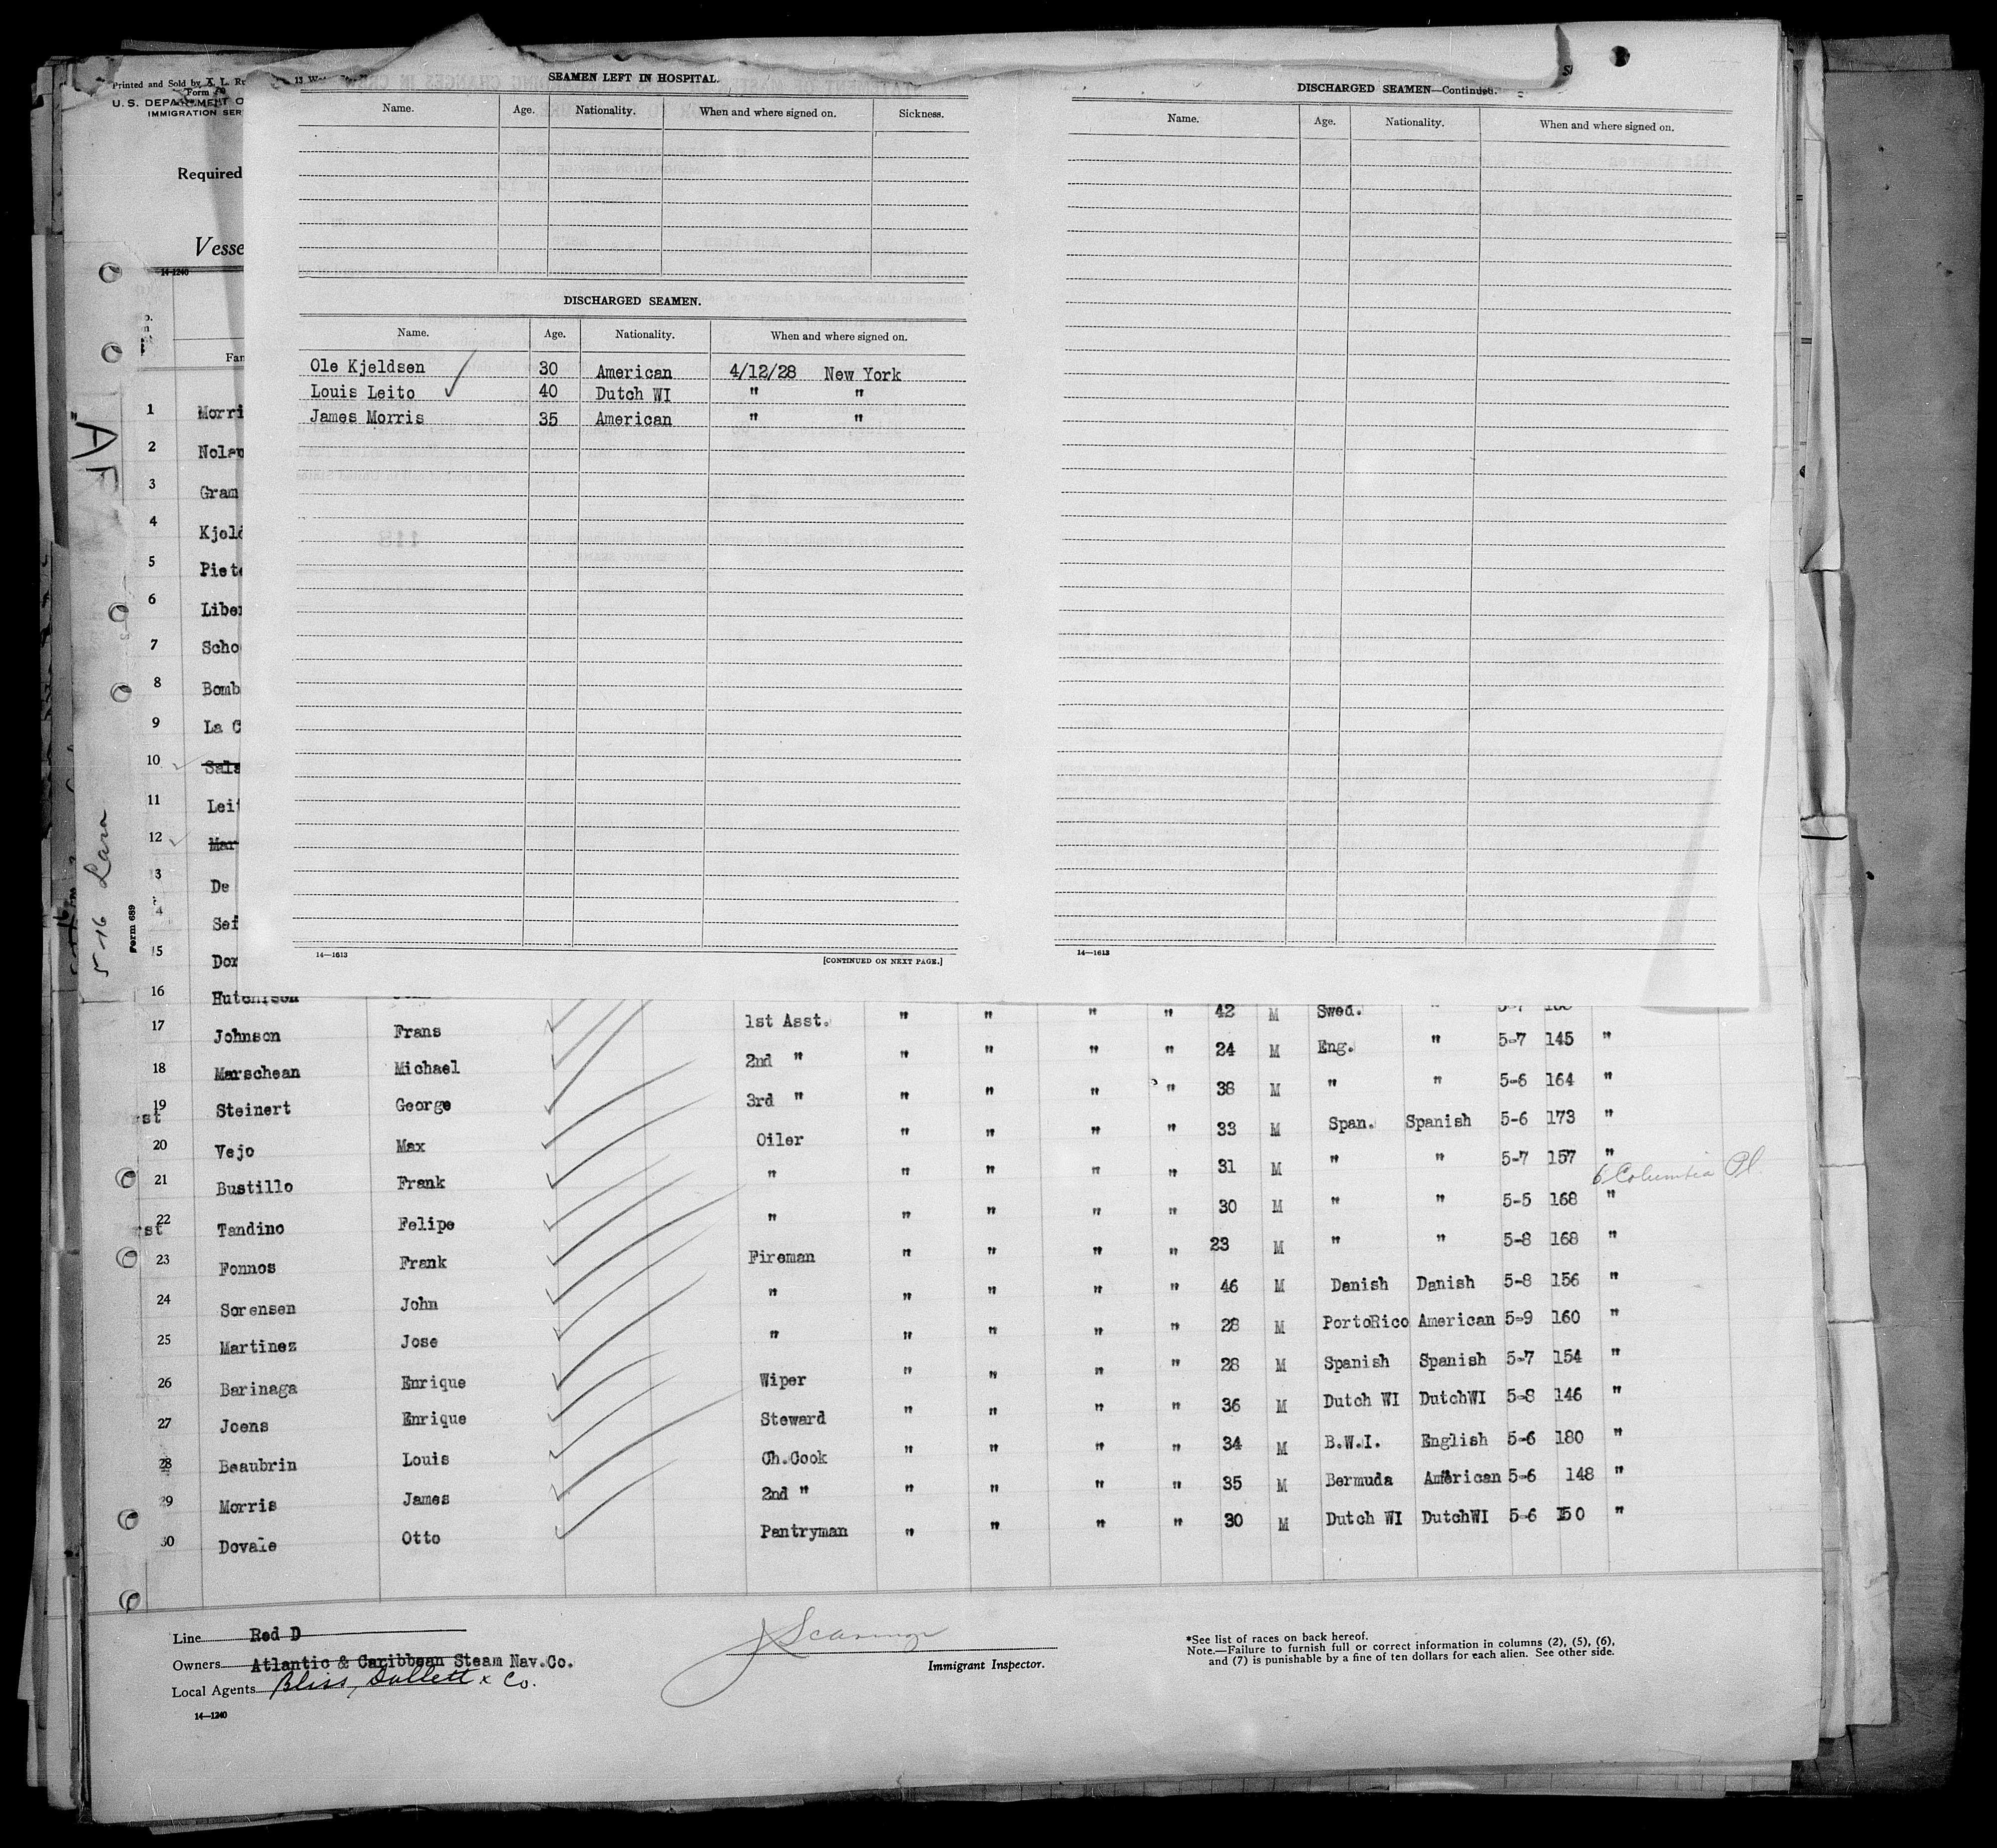 Printed and Sold by
Form
U.S. DEPARTMENT O
IMMIGRATION SER
Required
Vesse
14-1240
Fam
SEAMEN LEFT IN HOSPITAL.
Name. Age. Nationality. When and where signed on. Sickness.
DISCHARGED SEAMEN.
Name. Age. Nationality. When and where signed on.
Ole Kjeldsen 30 American 4/12/28 New York
Louis Leito 40 Dutch WI " "
James Morris 35 American " "
14—1613 [CONTINUED ON NEXT PAGE.]
DISCHARGED SEAMEN—Continued.
Name. Age. Nationality. When and where signed on.
14—1613
5-16 Lara
Form 689
1 Morri
2 Nolan
3 Gram
4 Kjeld
5 Piete
6 Liber
7 Scho
8 Bomb
9 La C
10 Sala
11 Leit
12 Mar
3 De
4 Sei
15 Dor
16 Hutchison
17 Johnson Frans 1st Asst. " " " " 42 M Swed. "
18 Marschean Michael 2nd " " " " " 24 M Eng. " 5-7 145 "
19 Steinert George 3rd " " " " " 38 M " " 5-6 164 "
20 Vejo Max Oiler " " " " 33 M Span. Spanish 5-6 173 "
21 Bustillo Frank " " " " " 31 M " " 5-7 157 "
6 Columbia Pl.
22 Tandino Felipe " " " " " 30 M " " 5-5 168 "
23 Fonnos Frank Fireman " " " " 23 M " " 5-8 168 "
24 Sorensen John " " " " " 46 M Danish Danish 5-8 156 "
25 Martinez Jose " " " " " 28 M PortoRico American 5-9 160 "
26 Barinaga Enrique Wiper " " " " 28 M Spanish Spanish 5-7 154 "
27 Joens Enrique Steward " " " " 36 M Dutch WI DutchWI 5-8 146 "
28 Beaubrin Louis Ch.Cook " " " " 34 M B.W.I. English 5-6 180 "
29 Morris James 2nd " " " " " 35 M Bermuda American 5-6 148 "
30 Dovale Otto Pantryman " " " " 30 M Dutch WI DutchWI 5-6 150 "
Line Red D
Owners Atlantic & Caribbean Steam Nav.Co.
Local Agents Bliss, Dallett & Co.
14—1240
Immigrant Inspector.
*See list of races on back hereof.
Note.—Failure to furnish full or correct information in columns (2), (5), (6),
and (7) is punishable by a fine of ten dollars for each alien. See other side.